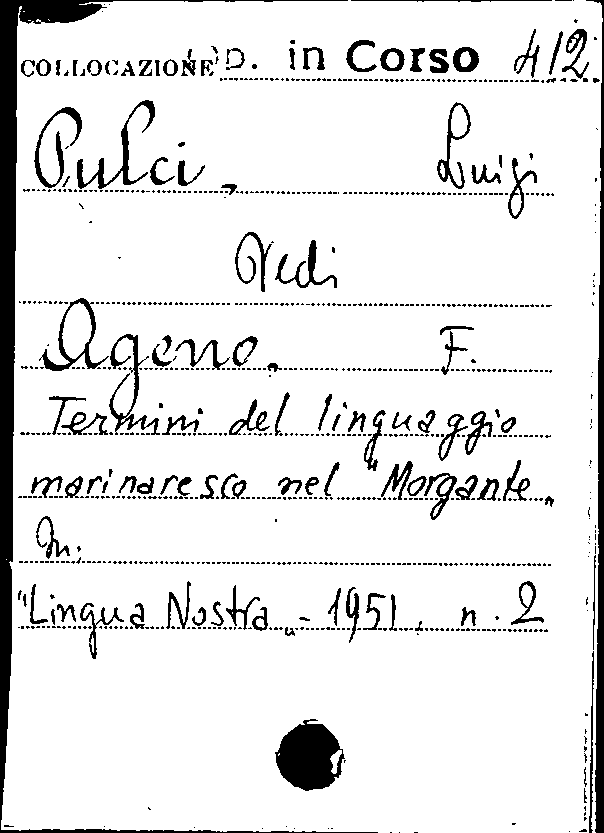 COLLOCAZIONE P. in Corso 412
Pulci, Luigi
Vedi
Ageno, F.
Termini del linguaggio
marinaresco nel "Morgante„
In:
"Lingua Nostra„ - 1951, n. 2